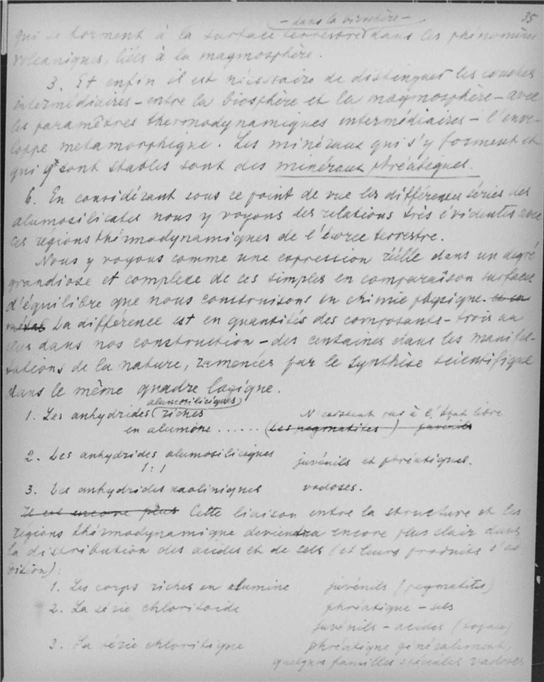 35
- dans la biosphère -
qui se forment à la surface terrestre dans les phénomènes
volcaniques, liés à la magmosphère.
3. Et enfin il est nécessaire de distinguer les couches
intermédiaires - entre la biosphère et la magmosphère - avec
les paramètres thermodynamiques intermédiaires - l'enve-
loppe métamorphique. Les minéraux qui s'y forment et
qui y sont stables sont des minéraux phréatiques.
6. En considérant sous ce point de vue les différentes séries des
alumosilicates nous y voyons des relations très évidentes avec
ces régions thérmodynamiques de l'écorce terrestre.
Nous y voyons comme une expression réelle dans un degré
grandiose et complexe de ces simples en comparaison surfaces
d'équilibre que nous construisons en chimie physique.
La différence est en quantités des composants - trois au
dans nos construction - des centaines dans les manifes-
tations de la nature, ramenées par le synthèse scientifique
dans le même quadre logique.
alumosiliciques
1. Les anhydrides (riches N'existent pas à l'état libre
en alumine ...... (Les pegmatites) juvénils
2. Les anhydrides alumosiliciques juvénils et phréatiques.
1:1
3. Les anhydrides kaoliniques vadoses.
Il est encore plus Cette liaison entre la structure et les
régions thérmodynamique deviendra encore plus clair dans
la distribution des acides et de sels (et leurs produits d'ad-
dition):
1. Les corps riches en alumine juvénils (pegmatites)
2. La série chloritoïde phréatique - sels
juvénils - acides
3. La série chloritique phréatique généralement,
quelques familles vadoses